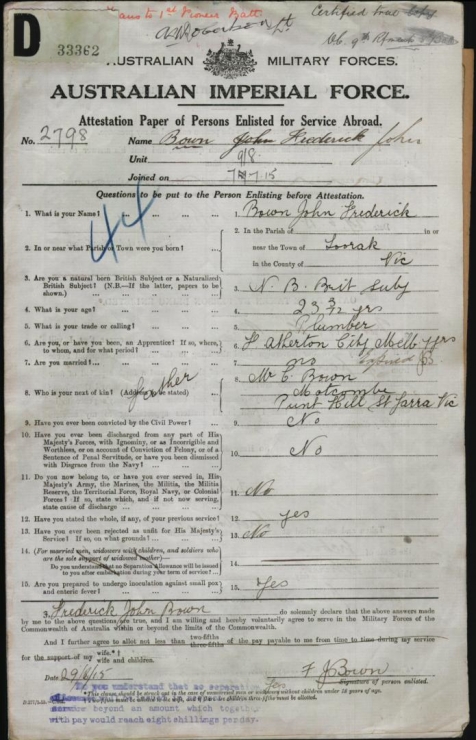 Trans to 1st Pioneer Batt
Certified true copy
D 33362
AUSTRALIAN MILITARY FORCES.
AUSTRALIAN IMPERIAL FORCE.
Attestation Paper of Persons Enlisted for Service Abroad.
No. 2798 Name Bown John Frederick John
Unit 9/8
Joined on 7.7.15
Questions to be put to the Person Enlisting before Attestation.
44
1. What is your Name? ... 1. Bown John Frederick
2. In or near what Parish or Town were you born? ... 2. In the Parish of in or
near the Town of Toorak
in the County of Vic
3. Are you a natural born British Subject or a Naturalised British Subject? (N.B.—If the latter, papers to be shown.) ... 3. N. B. Brit Subj
4. What is your age? ... 4. 23 yrs
5. What is your trade or calling? ... 5. Plumber
6. Are you, or have you been, an Apprentice? If so, where, to whom, and for what period? ... 6. Atherton City Melb yrs
7. Are you married? ... 7. no
8. Who is your next of kin? (Address to be stated) father ... 8. Mr C Bown
Motcombe
Punt Hill St Yarra Vic
9. Have you ever been convicted by the Civil Power? ... 9. No
10. Have you ever been discharged from any part of His Majesty's Forces, with Ignominy, or as Incorrigible and Worthless, or on account of Conviction of Felony, or of a Sentence of Penal Servitude, or have you been dismissed with Disgrace from the Navy? ... 10. No
11. Do you now belong to, or have you ever served in, His Majesty's Army, the Marines, the Militia, the Militia Reserve, the Territorial Force, Royal Navy, or Colonial Forces? If so, state which, and if not now serving, state cause of discharge ... 11. No
12. Have you stated the whole, if any, of your previous service? 12. yes
13. Have you ever been rejected as unfit for His Majesty's Service? If so, on what grounds? ... 13. No
14. (For married men, widowers with children, and soldiers who are the sole support of widowed mother—
Do you understand that no Separation Allowance will be issued to you after embarkation during your term of service? ... 14.
15. Are you prepared to undergo inoculation against small pox and enteric fever? ... 15. Yes
I, Frederick John Bown do solemnly declare that the above answers made
by me to the above questions are true, and I am willing and hereby voluntarily agree to serve in the Military Forces of the
Commonwealth of Australia within or beyond the limits of the Commonwealth.
And I further agree to allot not less than two-fifths three-fifths of the pay payable to me from time to time during my service
for the support of my wife.*
wife and children.
Date 29/6/15 F J Bown
Signature of person enlisted.
Do you understand that no separation
service beyond an amount which together
with pay would reach eight shillings per day.
*This clause should be struck out in the case of unmarried men or widowers without children under 18 years of age.